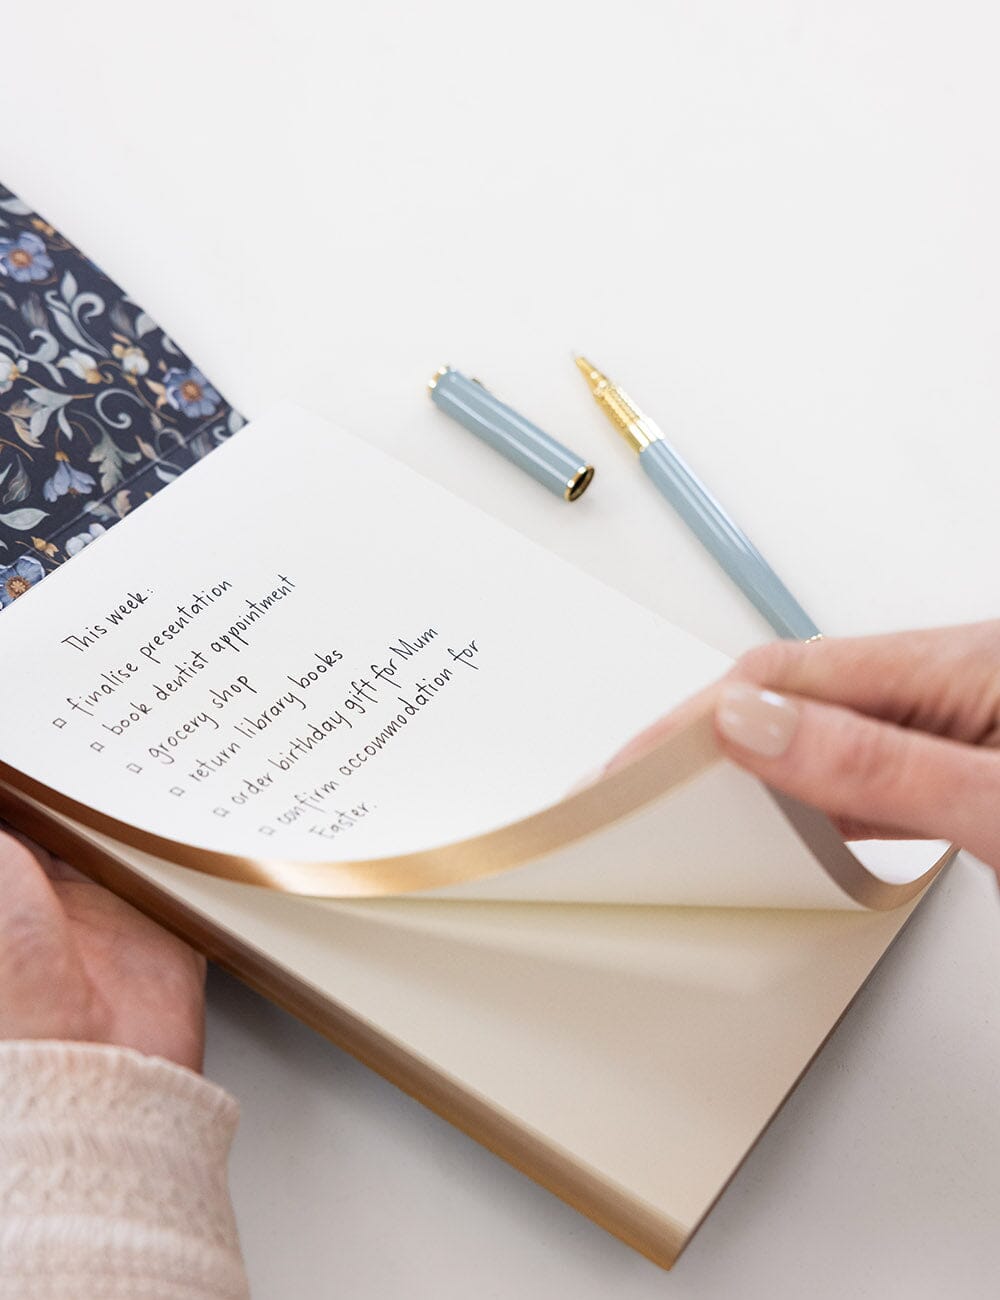 This week:
□ finalise presentation
□ book dentist appointment
□ grocery shop
□ return library books
□ order birthday gift for Mum
□ confirm accommodation for
Easter.